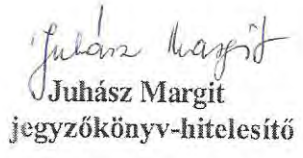 Juhász Margit
Juhász Margit
jegyzőkönyv-hitelesítő